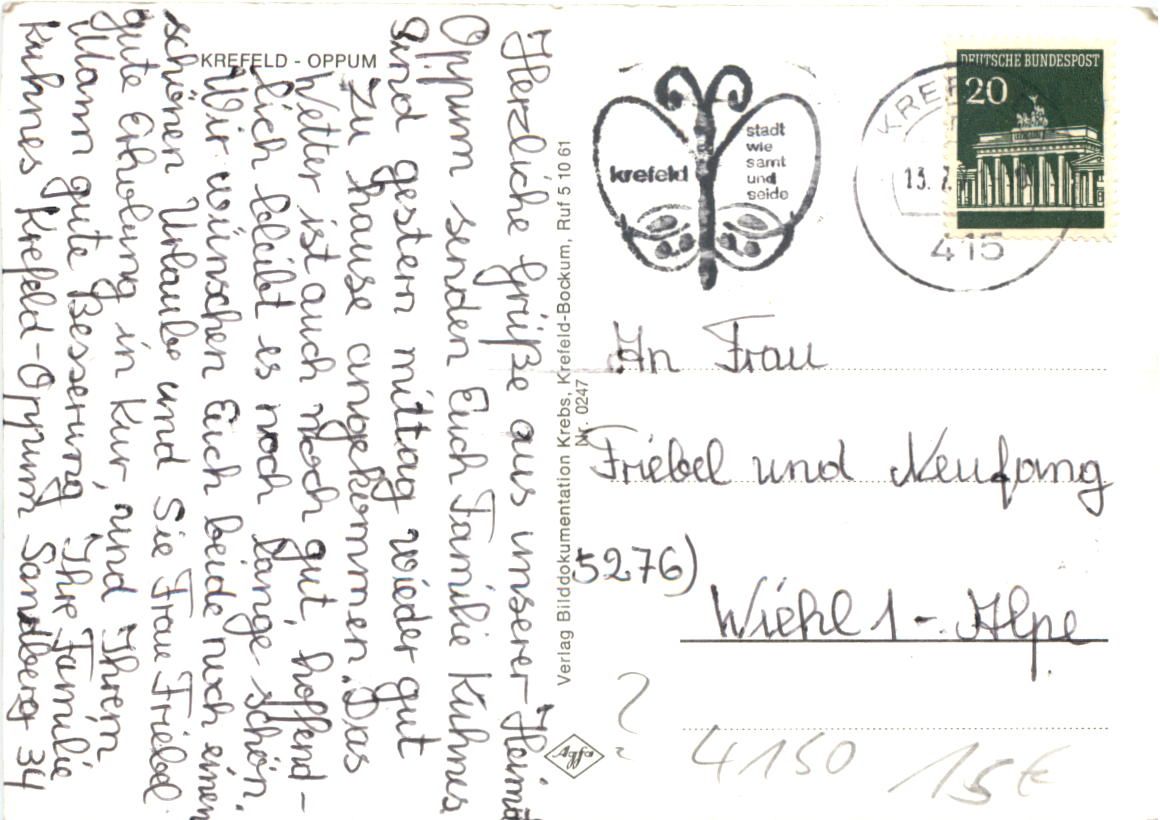 KREFELD - OPPUM
Herzliche Grüße aus unserer Heimat
Oppum senden Euch Familie Kuhnes
Sind gestern mittag wieder gut
Zu hause angekommen. Das
Wetter ist auch noch gut, hoffend-
lich bleibt es noch lange schön.
Wir wünschen Euch beide noch einen
schönen Urlaub und Sie Frau Friebel
gute Erholung in Kur, und Ihrem
Mann gute Besserung Ihre Familie
Kuhnes Krefeld-Oppum Sandberg 34
Verlag Bilddokumentation Krebs, Krefeld-Bockum, Ruf 5 10 61
Nr. 0247
krefeld
stadt
wie
samt
und
seide
13. 7.
415
DEUTSCHE BUNDESPOST
20
An Frau
Friebel und Neufang
5276)
Wiehl 1 - Alpe
Agfa
?
4150
15 €